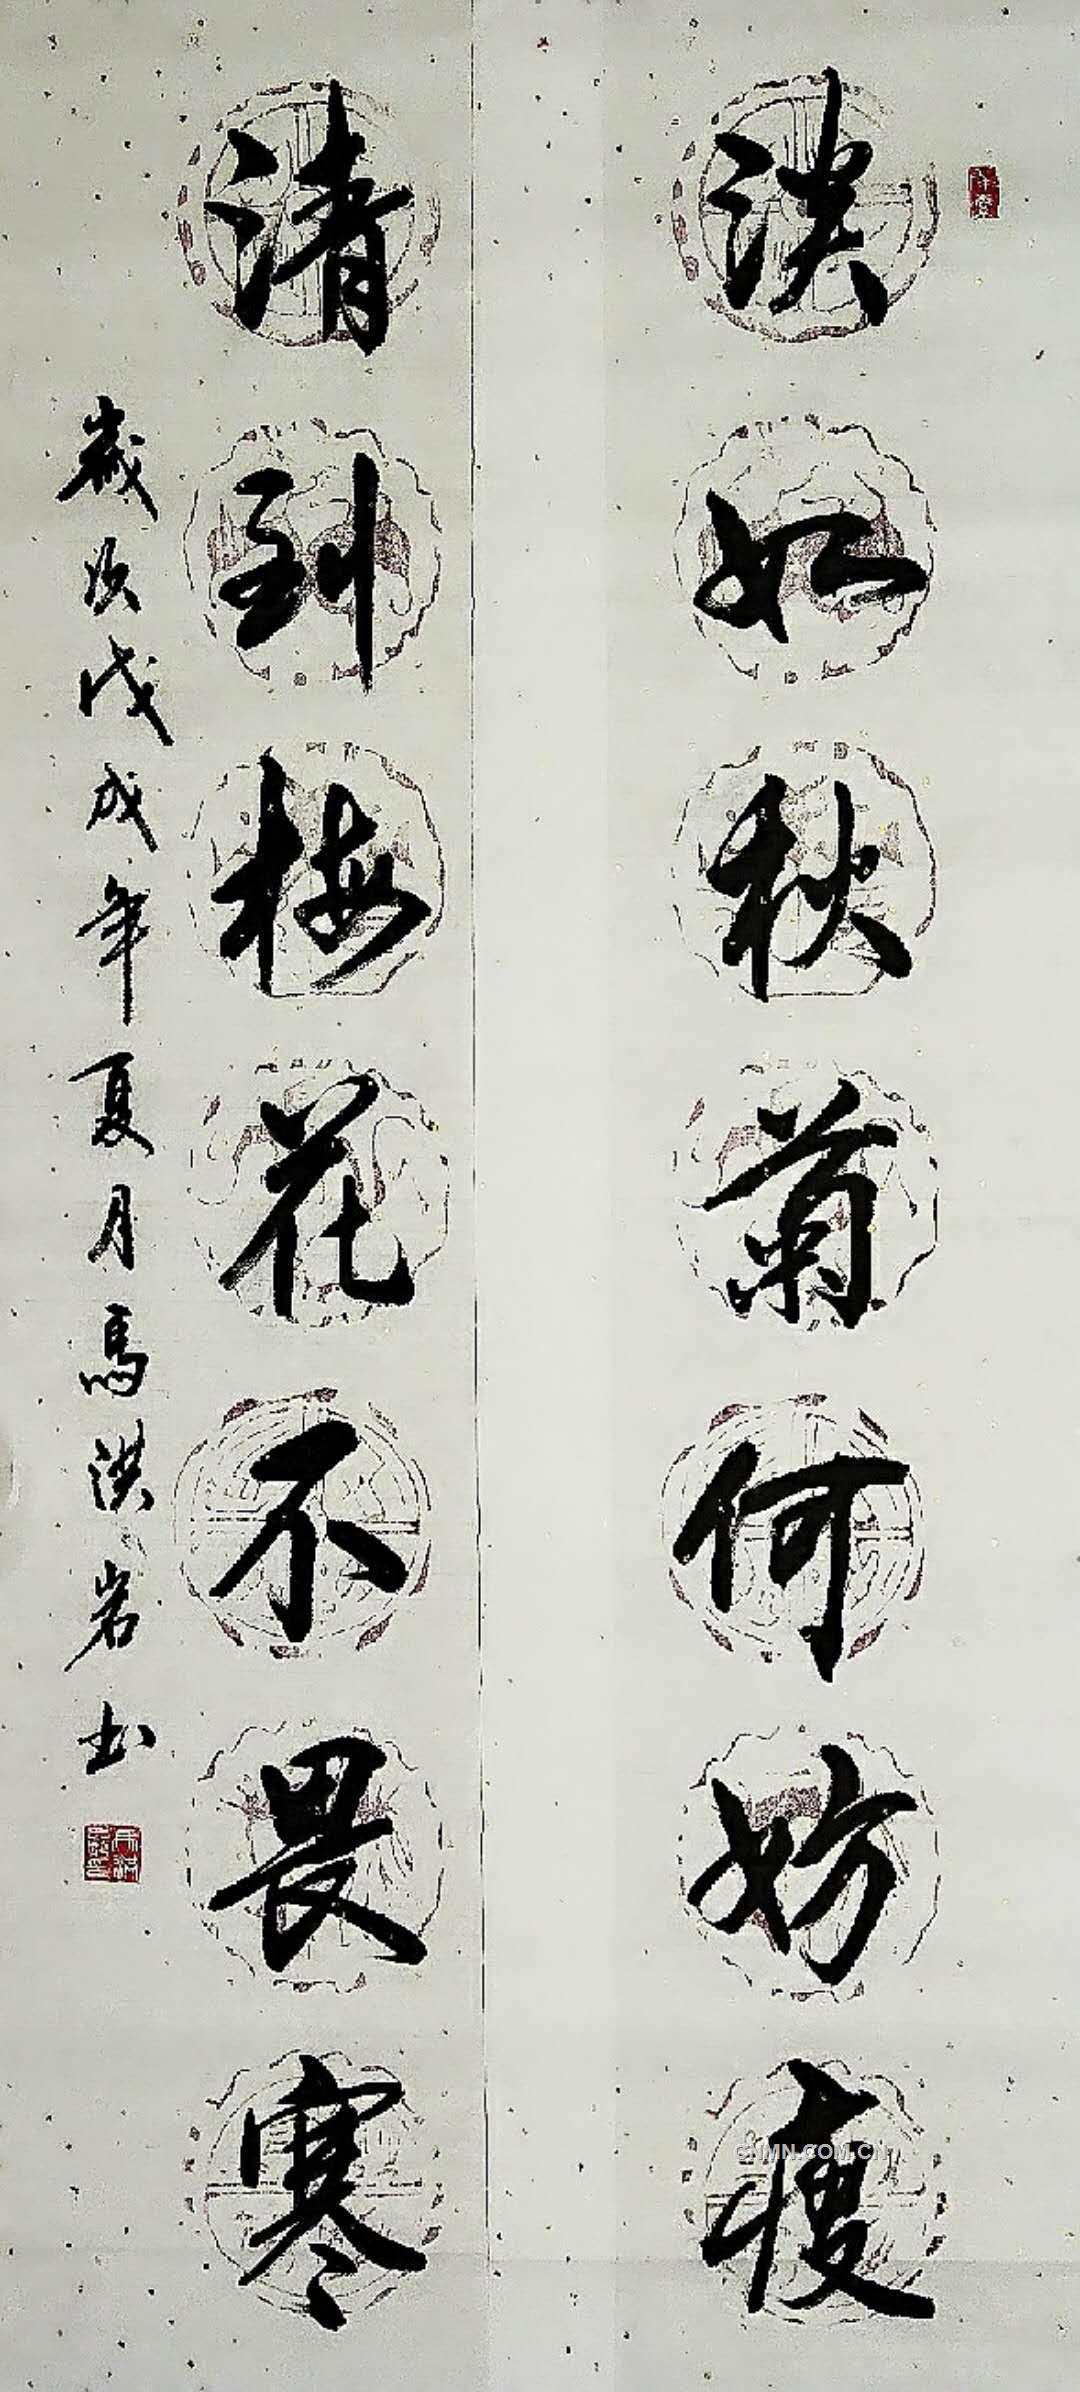 淡如秋菊何妨瘦
清到梅花不畏寒
歲次戊戌年夏月馬洪岩书
CNMN.COM.CN